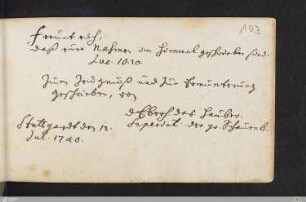 103
Freuet euch,
daß eure Nahmen im Himmel geschrieben sind.
Luc. 10. 20.
Zum Zeugnuß und zur Erinnerung
geschrieben, von
Eberh. dav. Hauber
Stuttgardt den 12. Superint. der gr. Schaumb.
Jul. 1740.